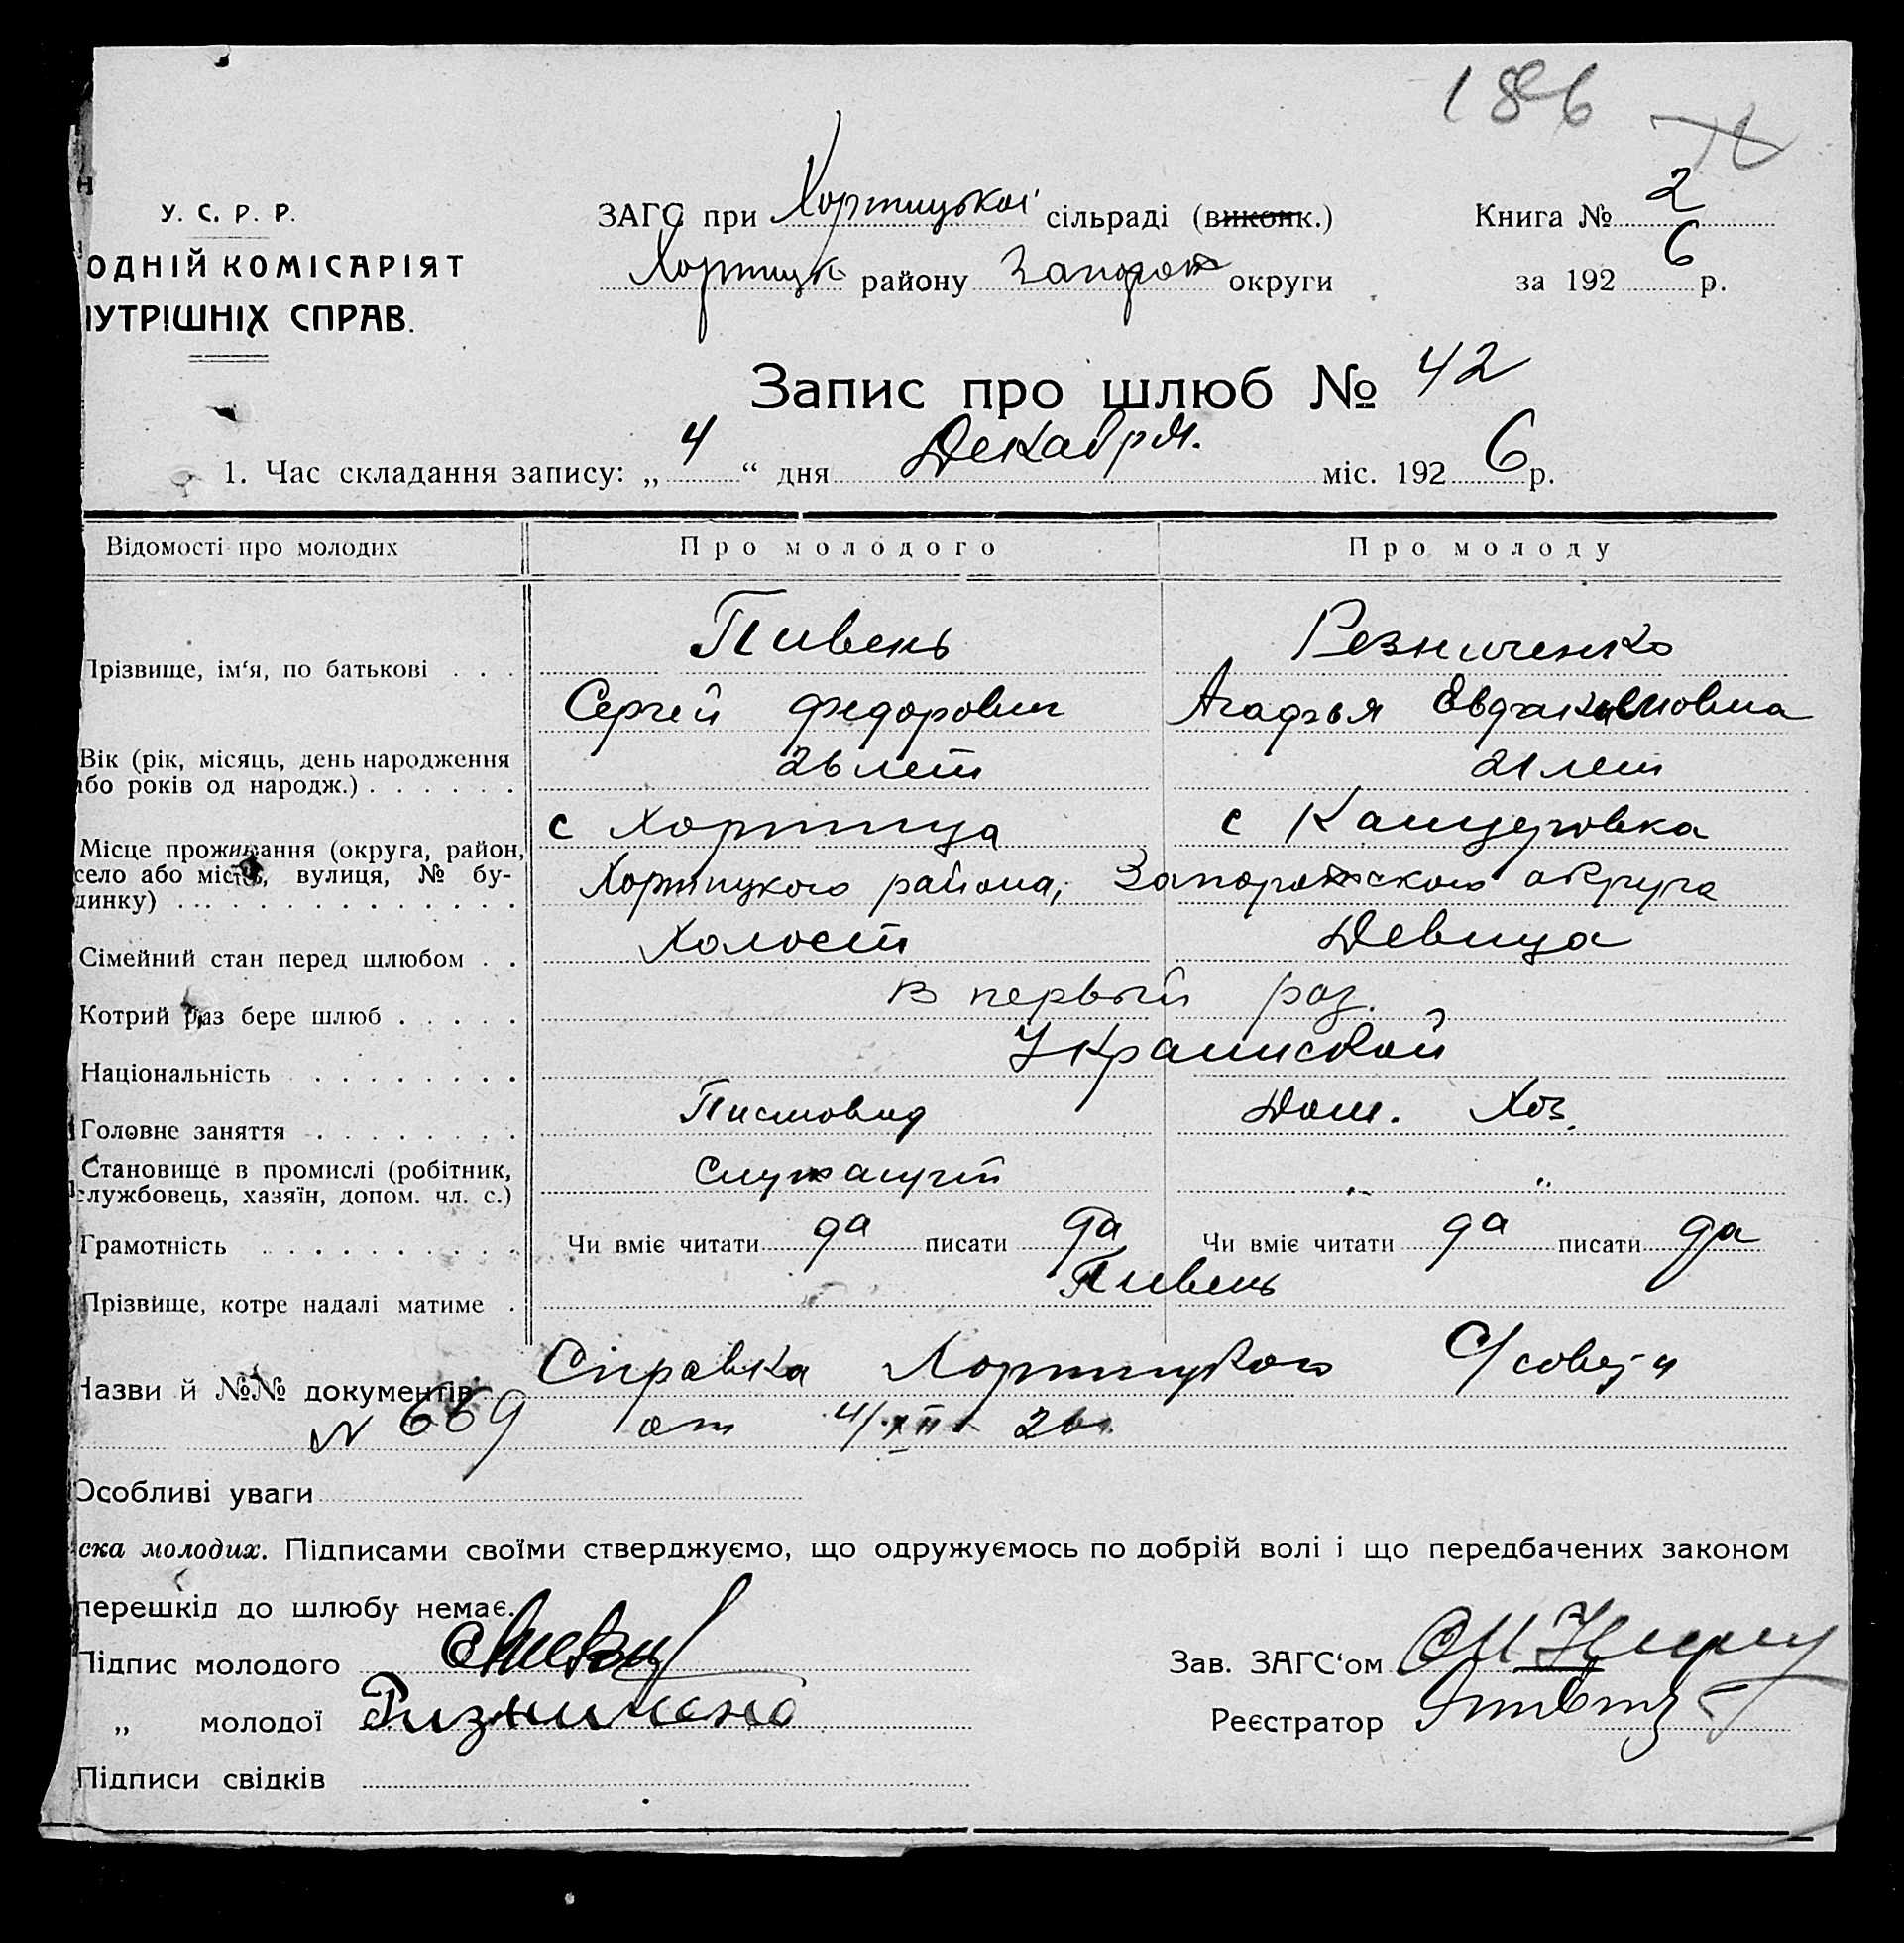 186
У. С. Р. Р.
ОДНІЙ КОМІСАРІЯТ
УТРІШНІХ СПРАВ.
ЗАГС при Хортицької сільраді (виконк.)
Хортицьк району Запорож округи
Книга № 2
за 1926 р.
Запис про шлюб № 42
1. Час складання запису: „4“ дня Декабря. міс. 1926 р.
Відомості про молодих Про молодого Про молоду
Прізвище, ім‘я, по батькові . . . Пивень Резниченко
Сергей Федорович Агафья Евдакимовна
Вік (рік, місяць, день народження
або років од народж.) . . . . . . 26 лет 21 лет
с Хортица с Канцеровка
Місце проживання (округа, район,
село або місто, вулиця, № бу-
динку) . . . . . . . . . . . . . . Хортицкого района, Запорожского округа
Сімейний стан перед шлюбом . . Холост Девица
Котрий раз бере шлюб . . . . . В первый раз.
Національність . . . . . . . . Украинской
Головне заняття . . . . . . . . Писмовод Дом. Хоз.
Становище в промислі (робітник,
службовець, хазяїн, допом. чл. с.) служащий „ „
Грамотність . . . . . . . . . . Чи вміє читати да писати да Чи вміє читати да писати да
Прізвище, котре надалі матиме . Пивень
Назви й №№ документів Справка Хортицкого С/совета
N 669 от 4/XII 26г.
Особливі уваги
ска молодих. Підписами своїми стверджуємо, що одружуємось по добрій волі і що передбачених законом
перешкід до шлюбу немає.
Підпис молодого Зав. ЗАГС‘ом
„ молодої Ризниченко Реєстратор
Підписи свідків